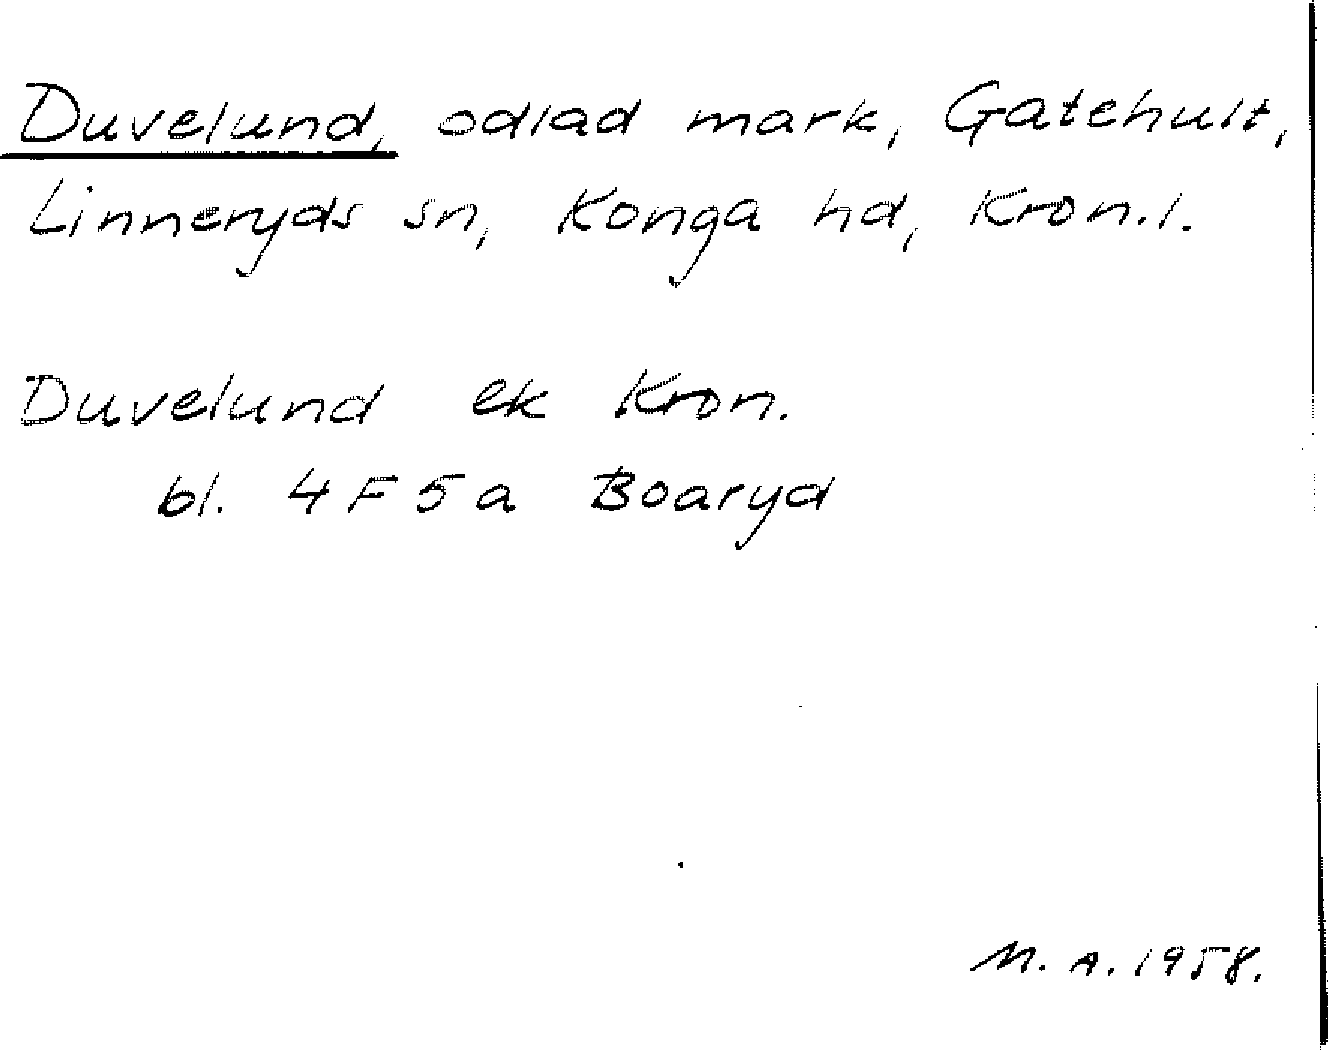 Duvelund, odlad mark, Gatehult,
Linneryds sn, Konga hd, Kron.l.
Duvelund ek Kron.
bl. 4F5a Boaryd
M.A. 1958.